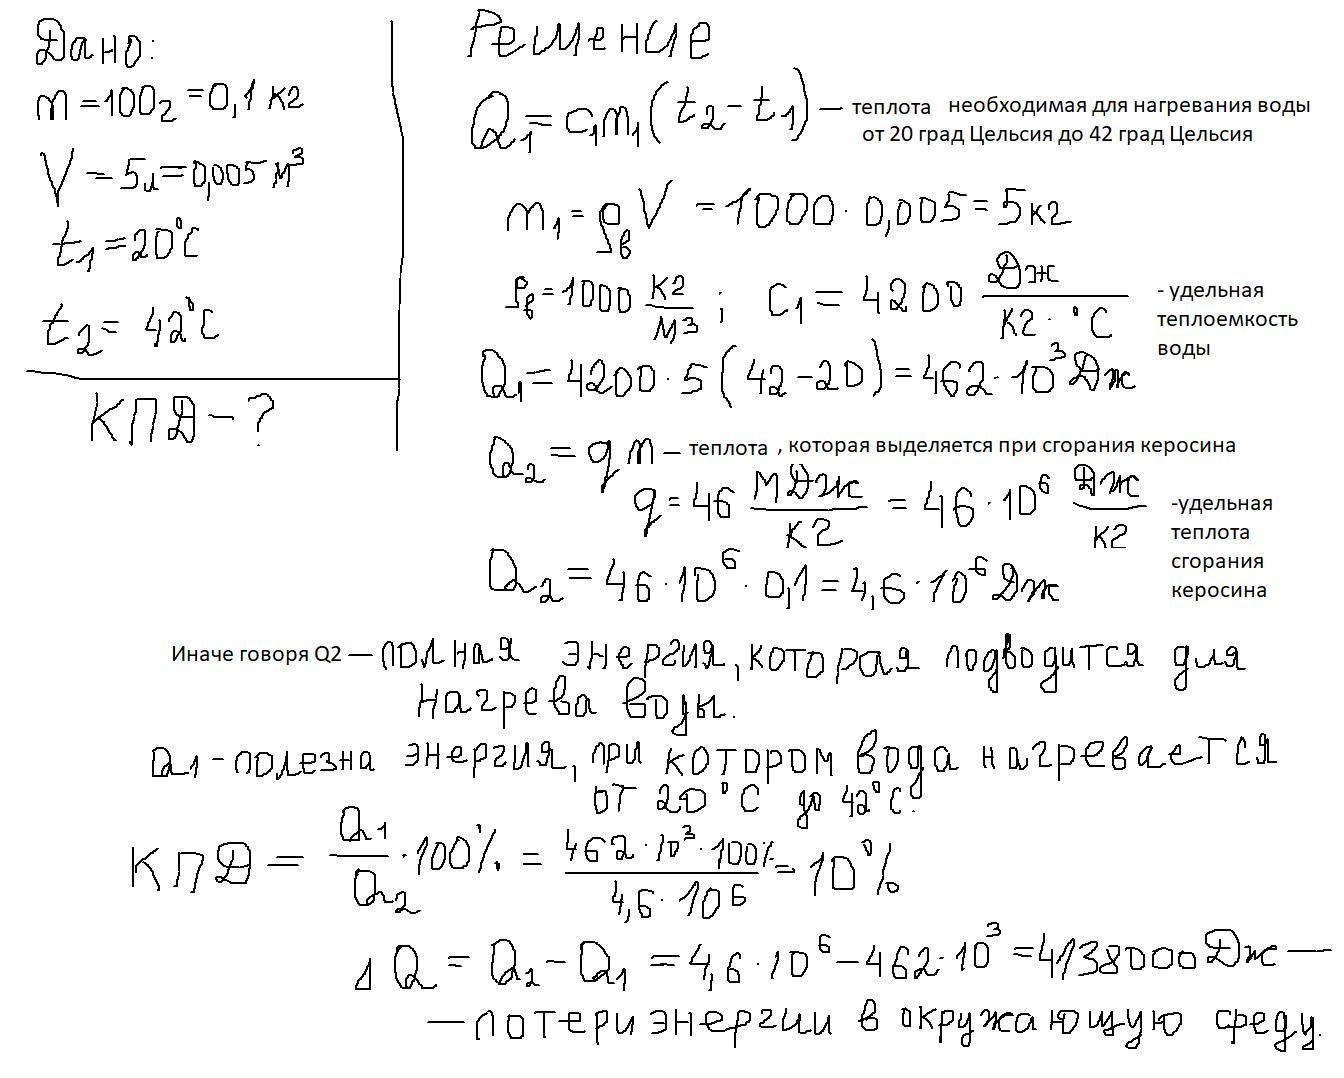 Дано:
m = 100г = 0,1 кг
V = 5л = 0,005 м³
t₁ = 20°C
t₂ = 42°C
КПД – ?
Решение
Q₁ = c₁m₁(t₂ – t₁) – теплота необходимая для нагревания воды
от 20 град Цельсия до 42 град Цельсия
m₁ = ρв V = 1000 · 0,005 = 5 кг
ρв = 1000 кг/м³ ; c₁ = 4200 Дж/(кг · °C)
- удельная
теплоемкость
воды
Q₁ = 4200 · 5 (42 – 20) = 462 · 10³ Дж
Q₂ = qm – теплота , которая выделяется при сгорания керосина
q = 46 МДж/кг = 46 · 10⁶ Дж/кг
-удельная
теплота
сгорания
керосина
Q₂ = 46 · 10⁶ · 0,1 = 4,6 · 10⁶ Дж
Иначе говоря Q2 — полная энергия, которая подводится для
нагрева воды.
Q₁ - полезна энергия, при котором вода нагревается
от 20°C до 42°C.
КПД = Q₁/Q₂ · 100% = 462 · 10³ · 100%/4,6 · 10⁶ = 10%
ΔQ = Q₂ – Q₁ = 4,6 · 10⁶ – 462 · 10³ = 4138000 Дж —
— потери энергии в окружающую среду.